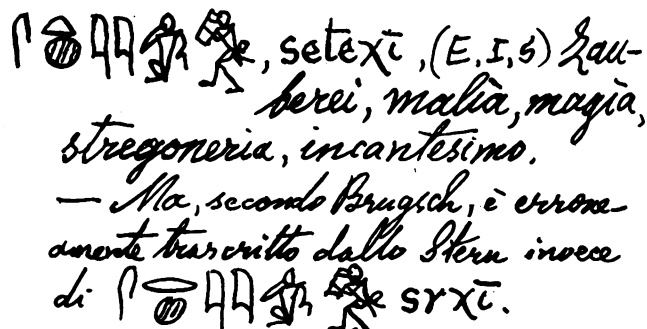 𓋴𓏏𓐍𓇋𓇋𓀁, seteχī, (E, I, 5) Zau-
berei, malìa, magìa,
stregoneria, incantesimo.
— Ma, secondo Brugsch, è errone-
amente trascritto dallo Stern invece
di 𓋴𓂋𓐍𓇋𓇋𓀁 srχī.